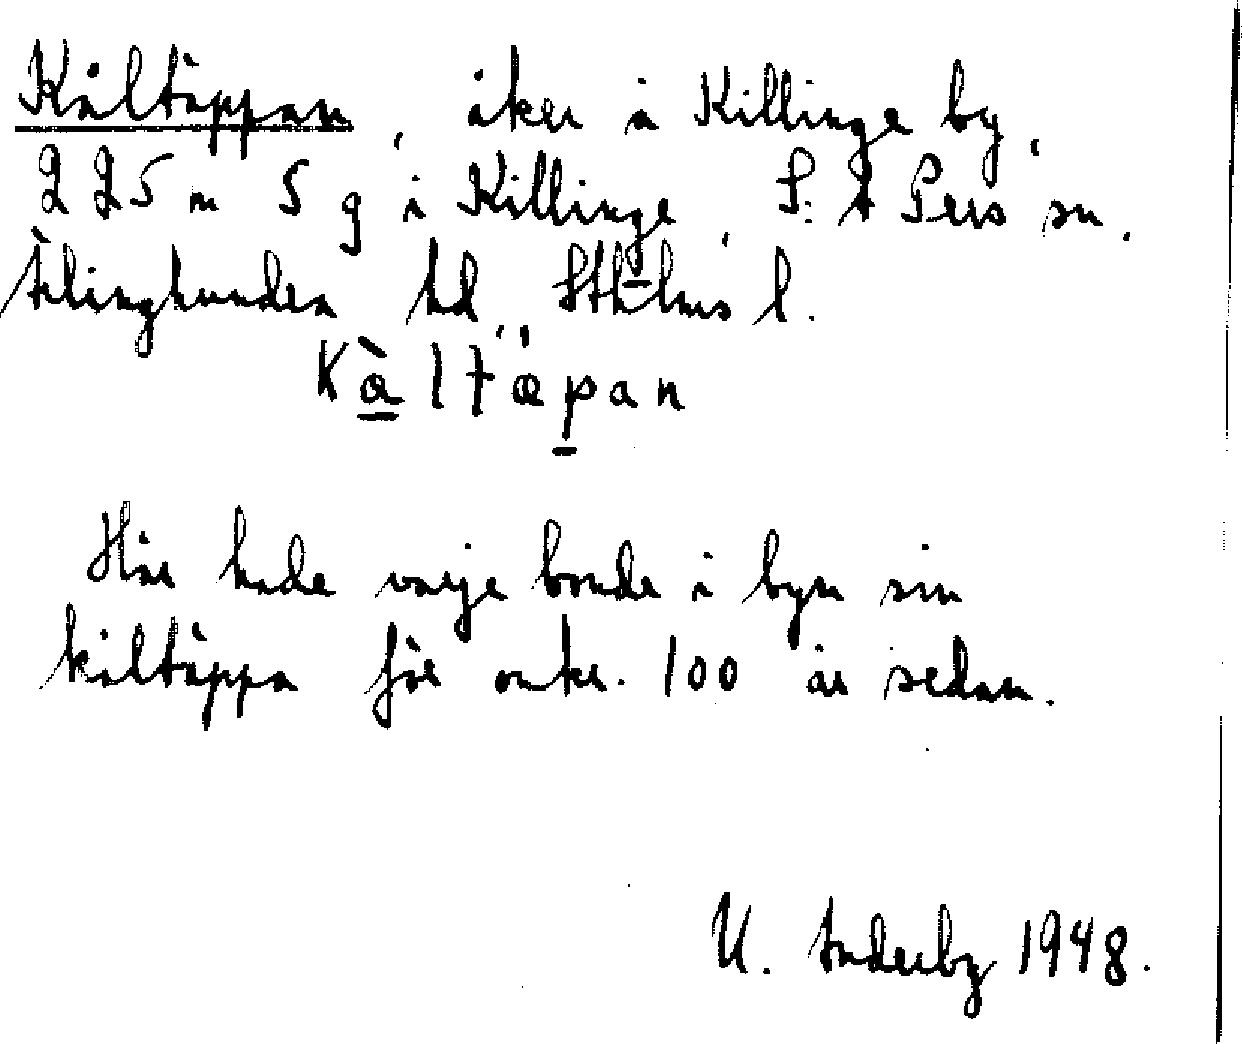 Kåltäppan, åker å Killinge by,
225 m S g i Killinge, S:t Pers sn,
Ärlinghundra hd, Sth-lms l.
Kàltæpan
Här hade varje bonde i byn sin
kåltäppa för omkr. 100 år sedan.
U. Enderby 1948.